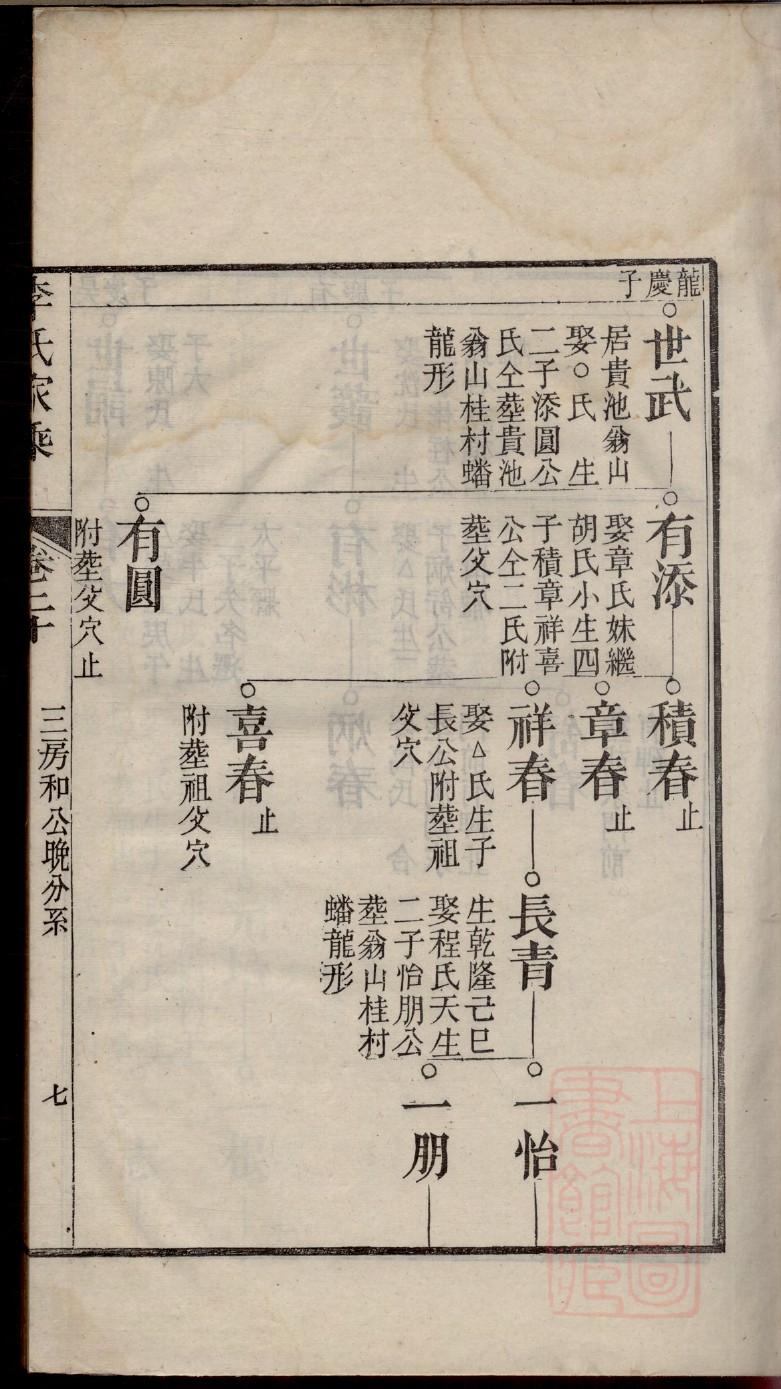 龍慶子
世武
居貴池翁山
娶○氏　生
二子添圓公
氏仝塟貴池
翁山桂村蟠
龍形
有添
娶章氏妹繼
胡氏小生四
子積章祥喜
公仝二氏附
塟父穴
有圓
附塟父穴止
積春
止
章春
止
祥春
娶△氏生子
長公附塟祖
父穴
喜春
止
附塟祖父穴
長青
生乾隆己巳
娶程氏天生
二子怡朋公
塟翁山桂村
蟠龍形
一怡
一朋
李氏家乘
卷二十
三房和公晚分系
七
上海圖書館藏